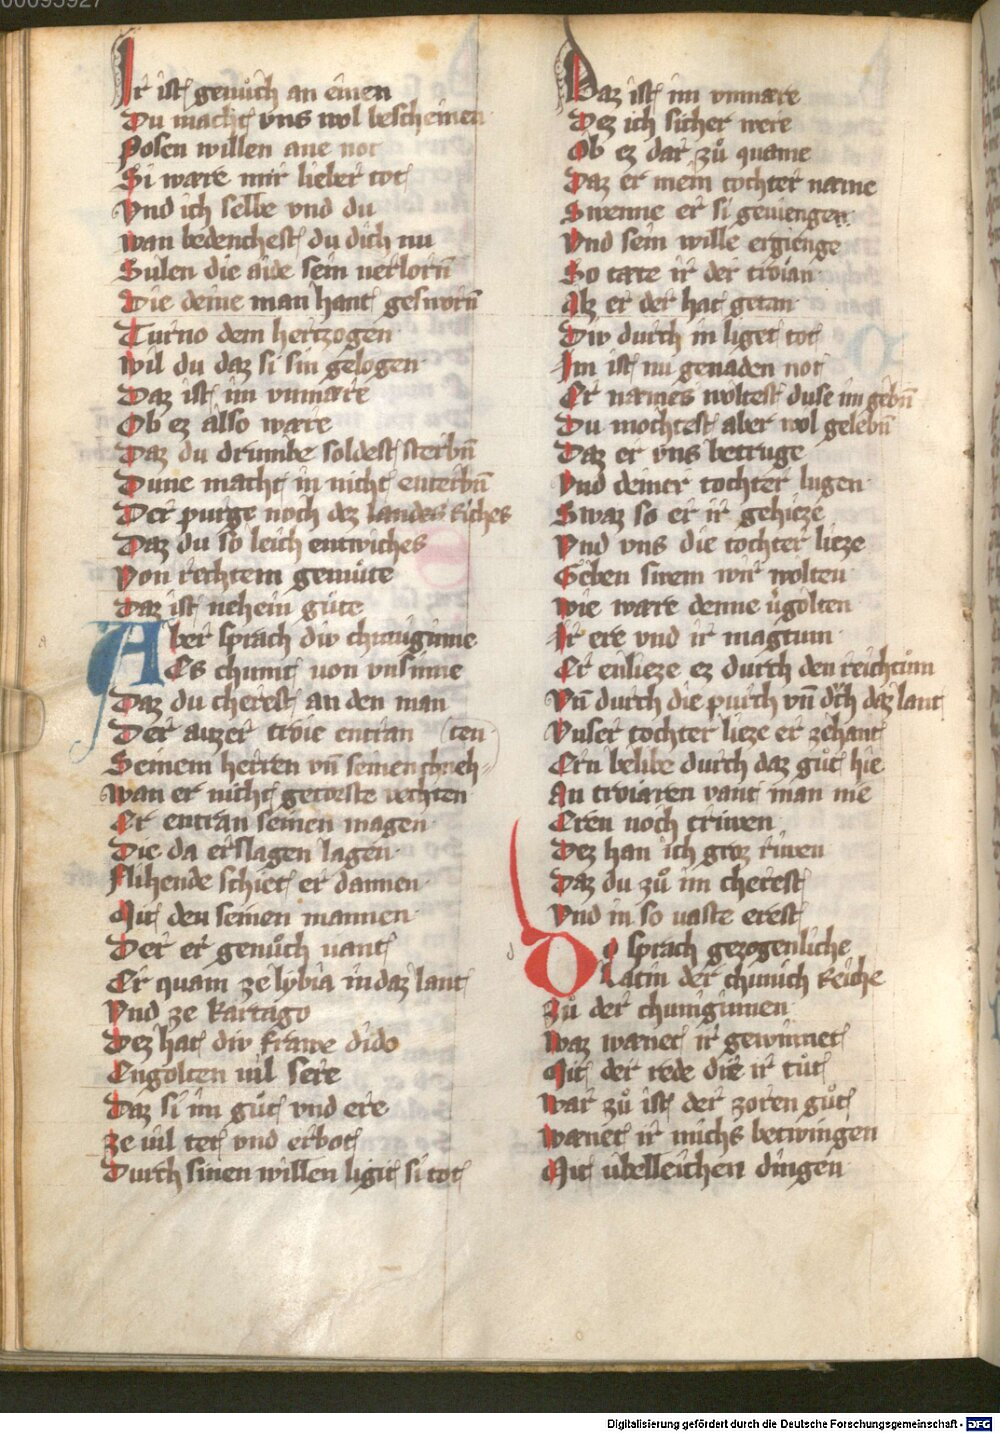 Ir ist genuͦch an einen
Du macht vns wol bescheinen
Posen willen ane not
Si wære mir lieber tot
Vnd ich selbe vnd du
wan bedenchest du dich nu
Sulen die aide sein uerlorn̄
Die deine man hant gesworn̄
Turno dem hertzogen
wil du daz si sin gelogen
Daz ist im vnmære
Ob ez also wære
Daz du drumbe soldest sterbn̄
Dune macht in nicht enterbn̄
Der purge noch dez landes Riches
Daz du so leich entwiches
Von rechtem gemuͤte
Daz ist nehein guͤte
Aber sprach div chuniginne
Es chumt uon vnsinne
Daz du cherest an den man
Der auzer troie entran (ten
Seinem herren vn̄ seinen chneh-
wan er nicht getorste vechten
Er entran seinen magen
Die da erslagen lagen
Flihende schiet er dannen
Mit den seinen mannen
Der er genuͦch uant
Er quam ze lybia in daz lant
Vnd ze Kartago
Dez hat div frawe dido
Engolten uil sere
Daz si im guͦt vnd ere
ze uil tet vnd erbot
Durch sinen willen ligit si tot
Daz ist im vnmære
Dez ich sicher were
Ob ez dar zuͦ quame
Daz er mein tochter næme
Swenne er si geuiengen
Vnd sein wille ergienge
So tæte ir der troian
Alz er der hat getan
Div durch in liget tot
Im ist nu genaden not
Er næmes woltest duse im gebn̄
Du mochtest aber wol gelebn̄
Daz er vns betruge
Vnd deiner tochter lugen
Swaz so er ir gehieze
Vnd vns die tochter lieze
Geben swem wir wolten
wie ware denne ūgolten
Ir ere vnd ir magtum
Er enlieze ez durch den reichtuͦm
Vn̄ durch die purch vn̄ dᷣch daz lant
Vnser tochter lieze er zehant
Ern belibe durch daz guͦt hie
An troiaren vant man nie
Eren noch triwen
Dez han ich groz riwen
Daz du zuͦ im cherest
Vnd in so uaste erest
Do sprach gezogenliche
Latin der chunich Reiche
Zuͦ der chuniginnen
Waz wænet ir gewinnet
Mit der rede die ir tuͦt
War zuͦ ist der zoren guͦt
Wænet ir michs betwingen
Mit ubelleichen dingen
Digitalisierung gefördert durch die Deutsche Forschungsgemeinschaft - DFG